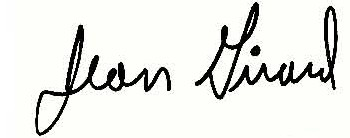 Jean Girard